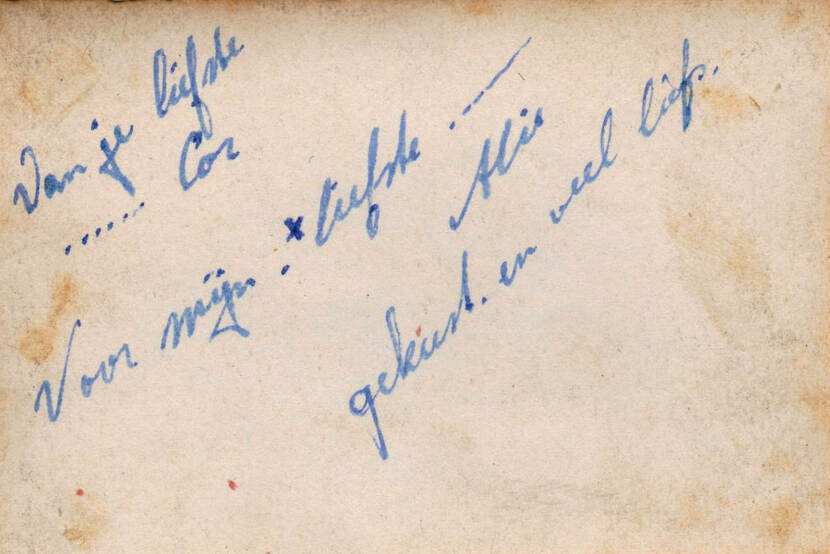 Van je liefste
...... Cor
Voor mijn. x liefste ..---
Alie
gekust. en veel liefs.